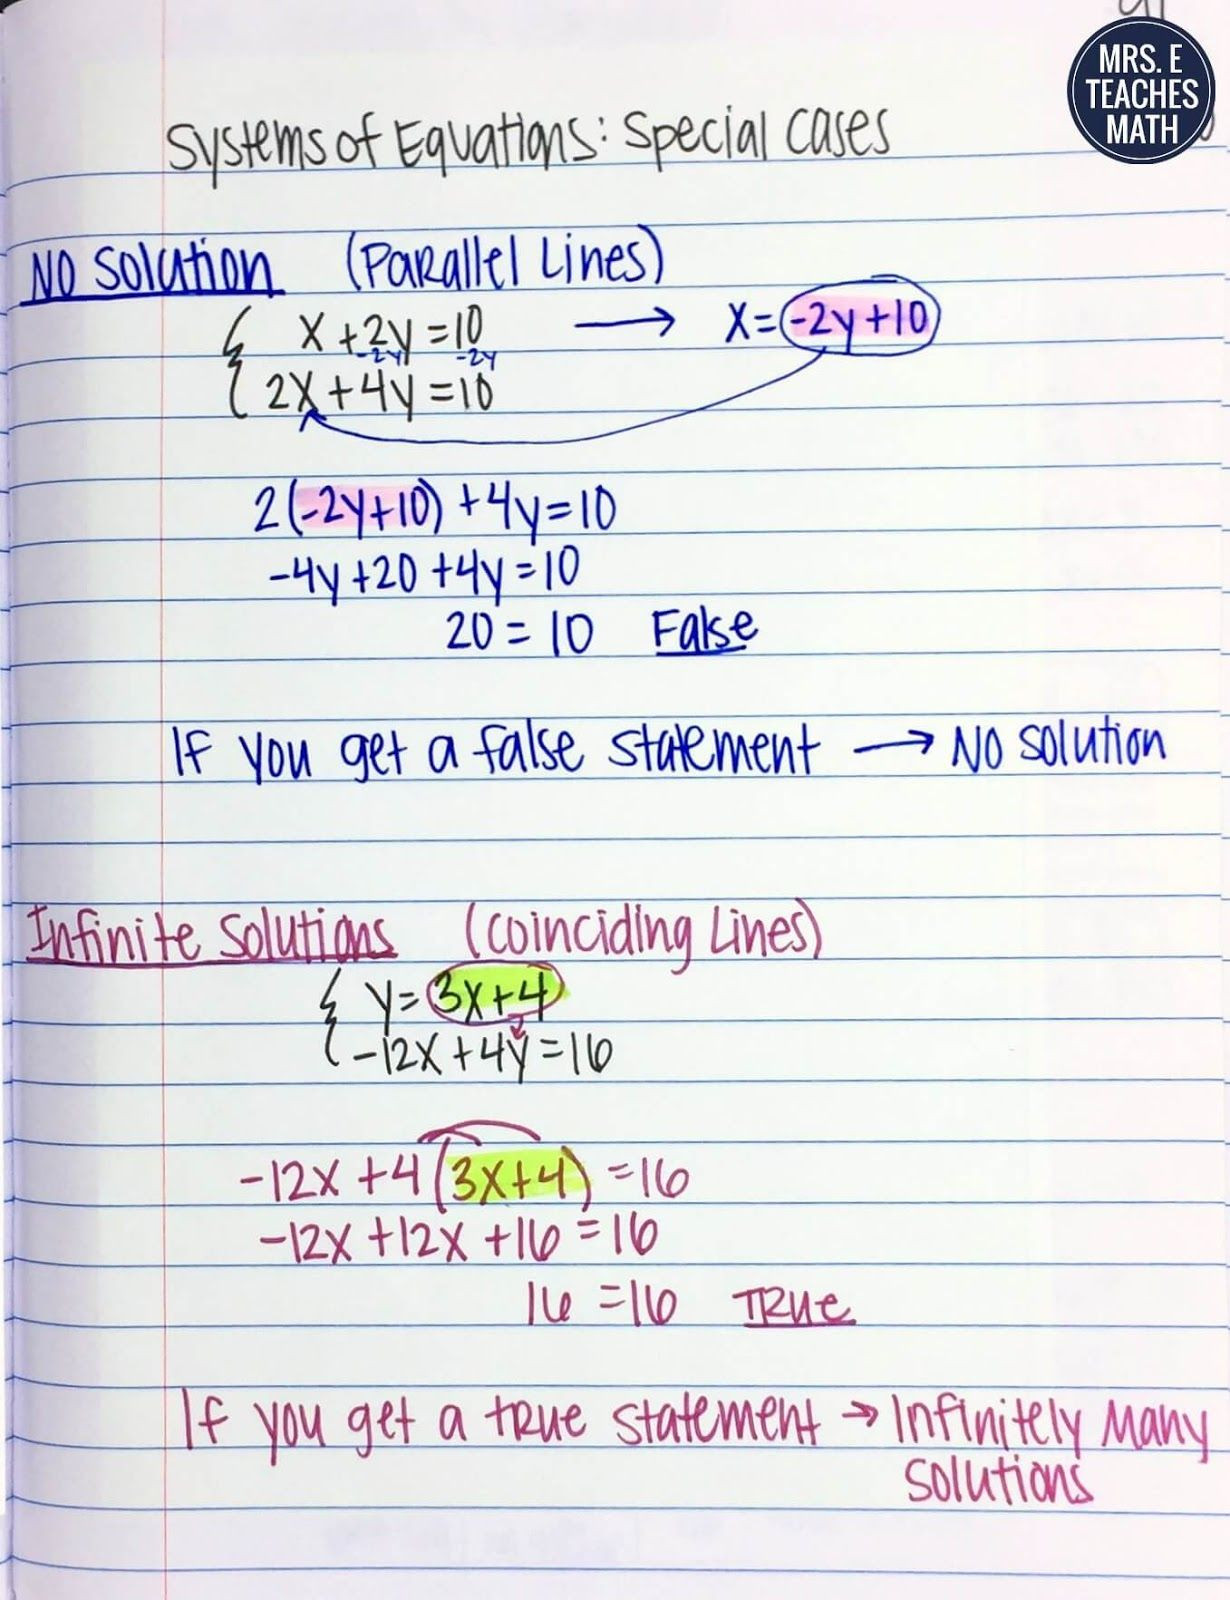 MRS. E
TEACHES
MATH
Systems of Equations: Special Cases
No Solution (Parallel Lines)
x + 2y = 10 → x = -2y + 10
-2y -2y
2x + 4y = 10
2(-2y+10) + 4y = 10
-4y + 20 + 4y = 10
20 = 10 False
If you get a false statement → No solution
Infinite Solutions (Coinciding Lines)
y = 3x+4
-12x + 4y = 16
-12x + 4(3x+4) = 16
-12x + 12x + 16 = 16
16 = 16 True
If you get a true statement → Infinitely Many
Solutions